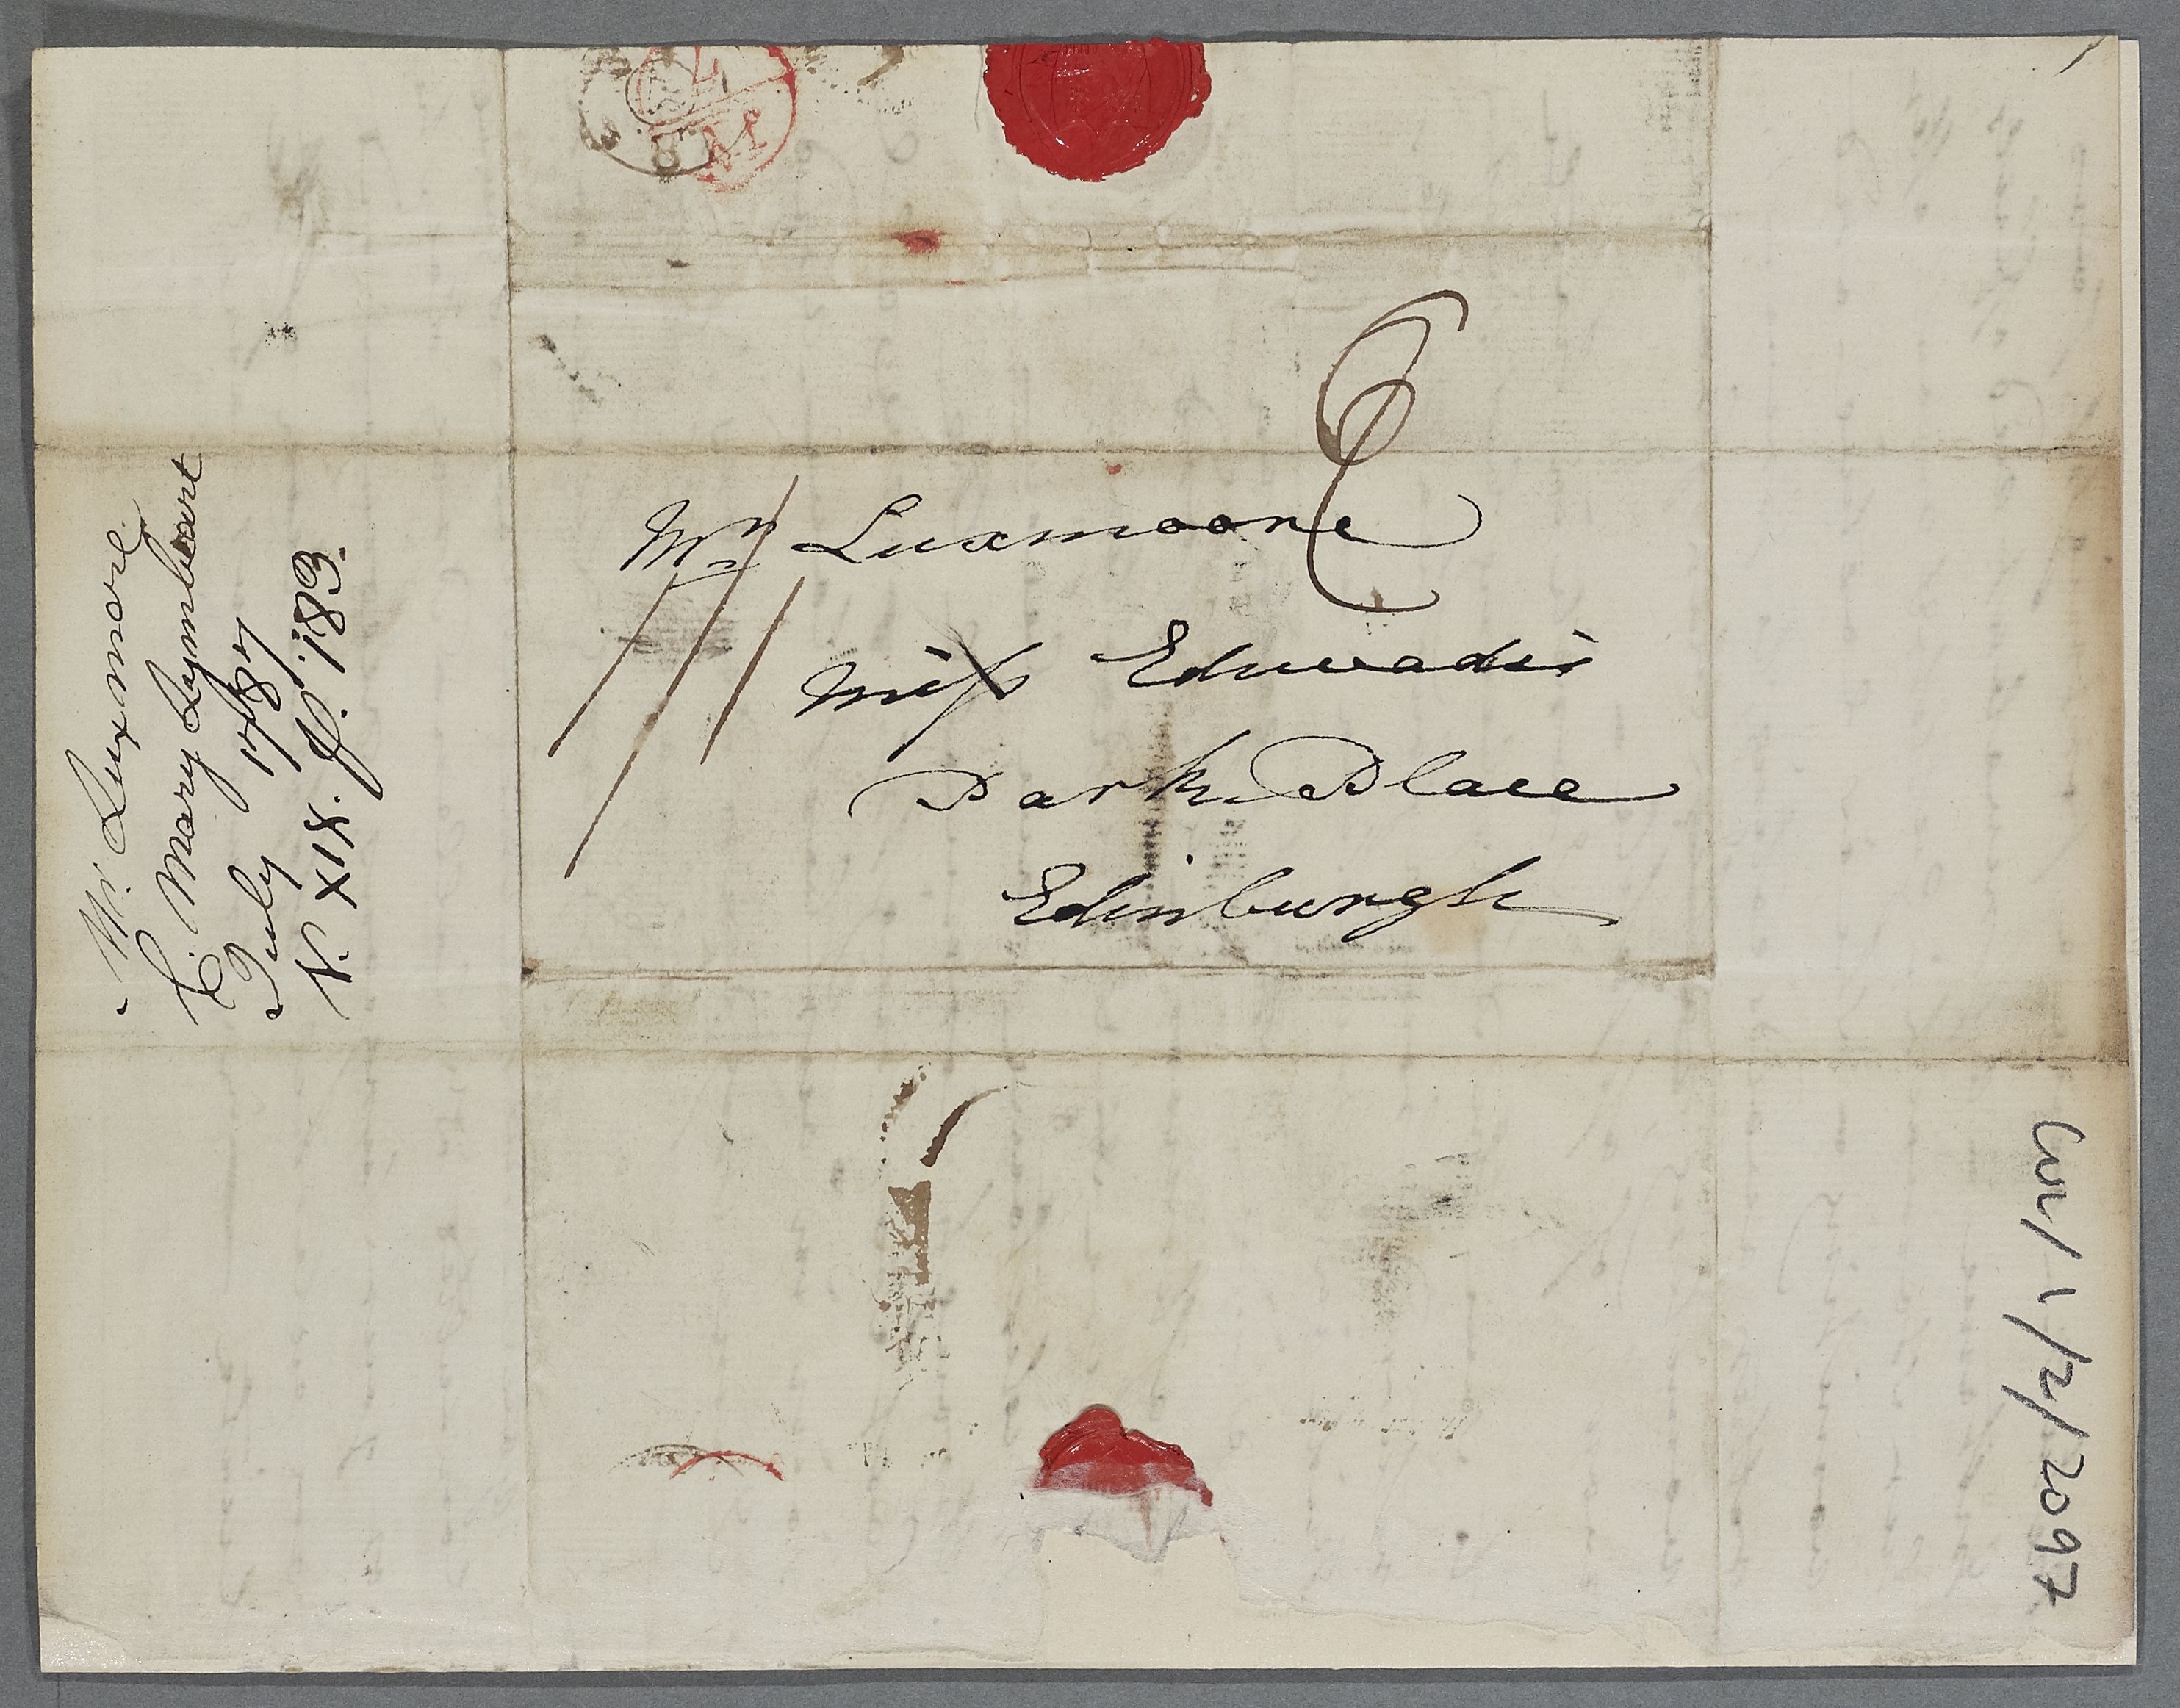 6
Mr Luxmoore
Miss Edwads
Park Place
Edinburgh
Mr. Luxmore
C. Mary Lymbeart
July 1787
N. XIX. P. 183.
CUL/1/2/2097